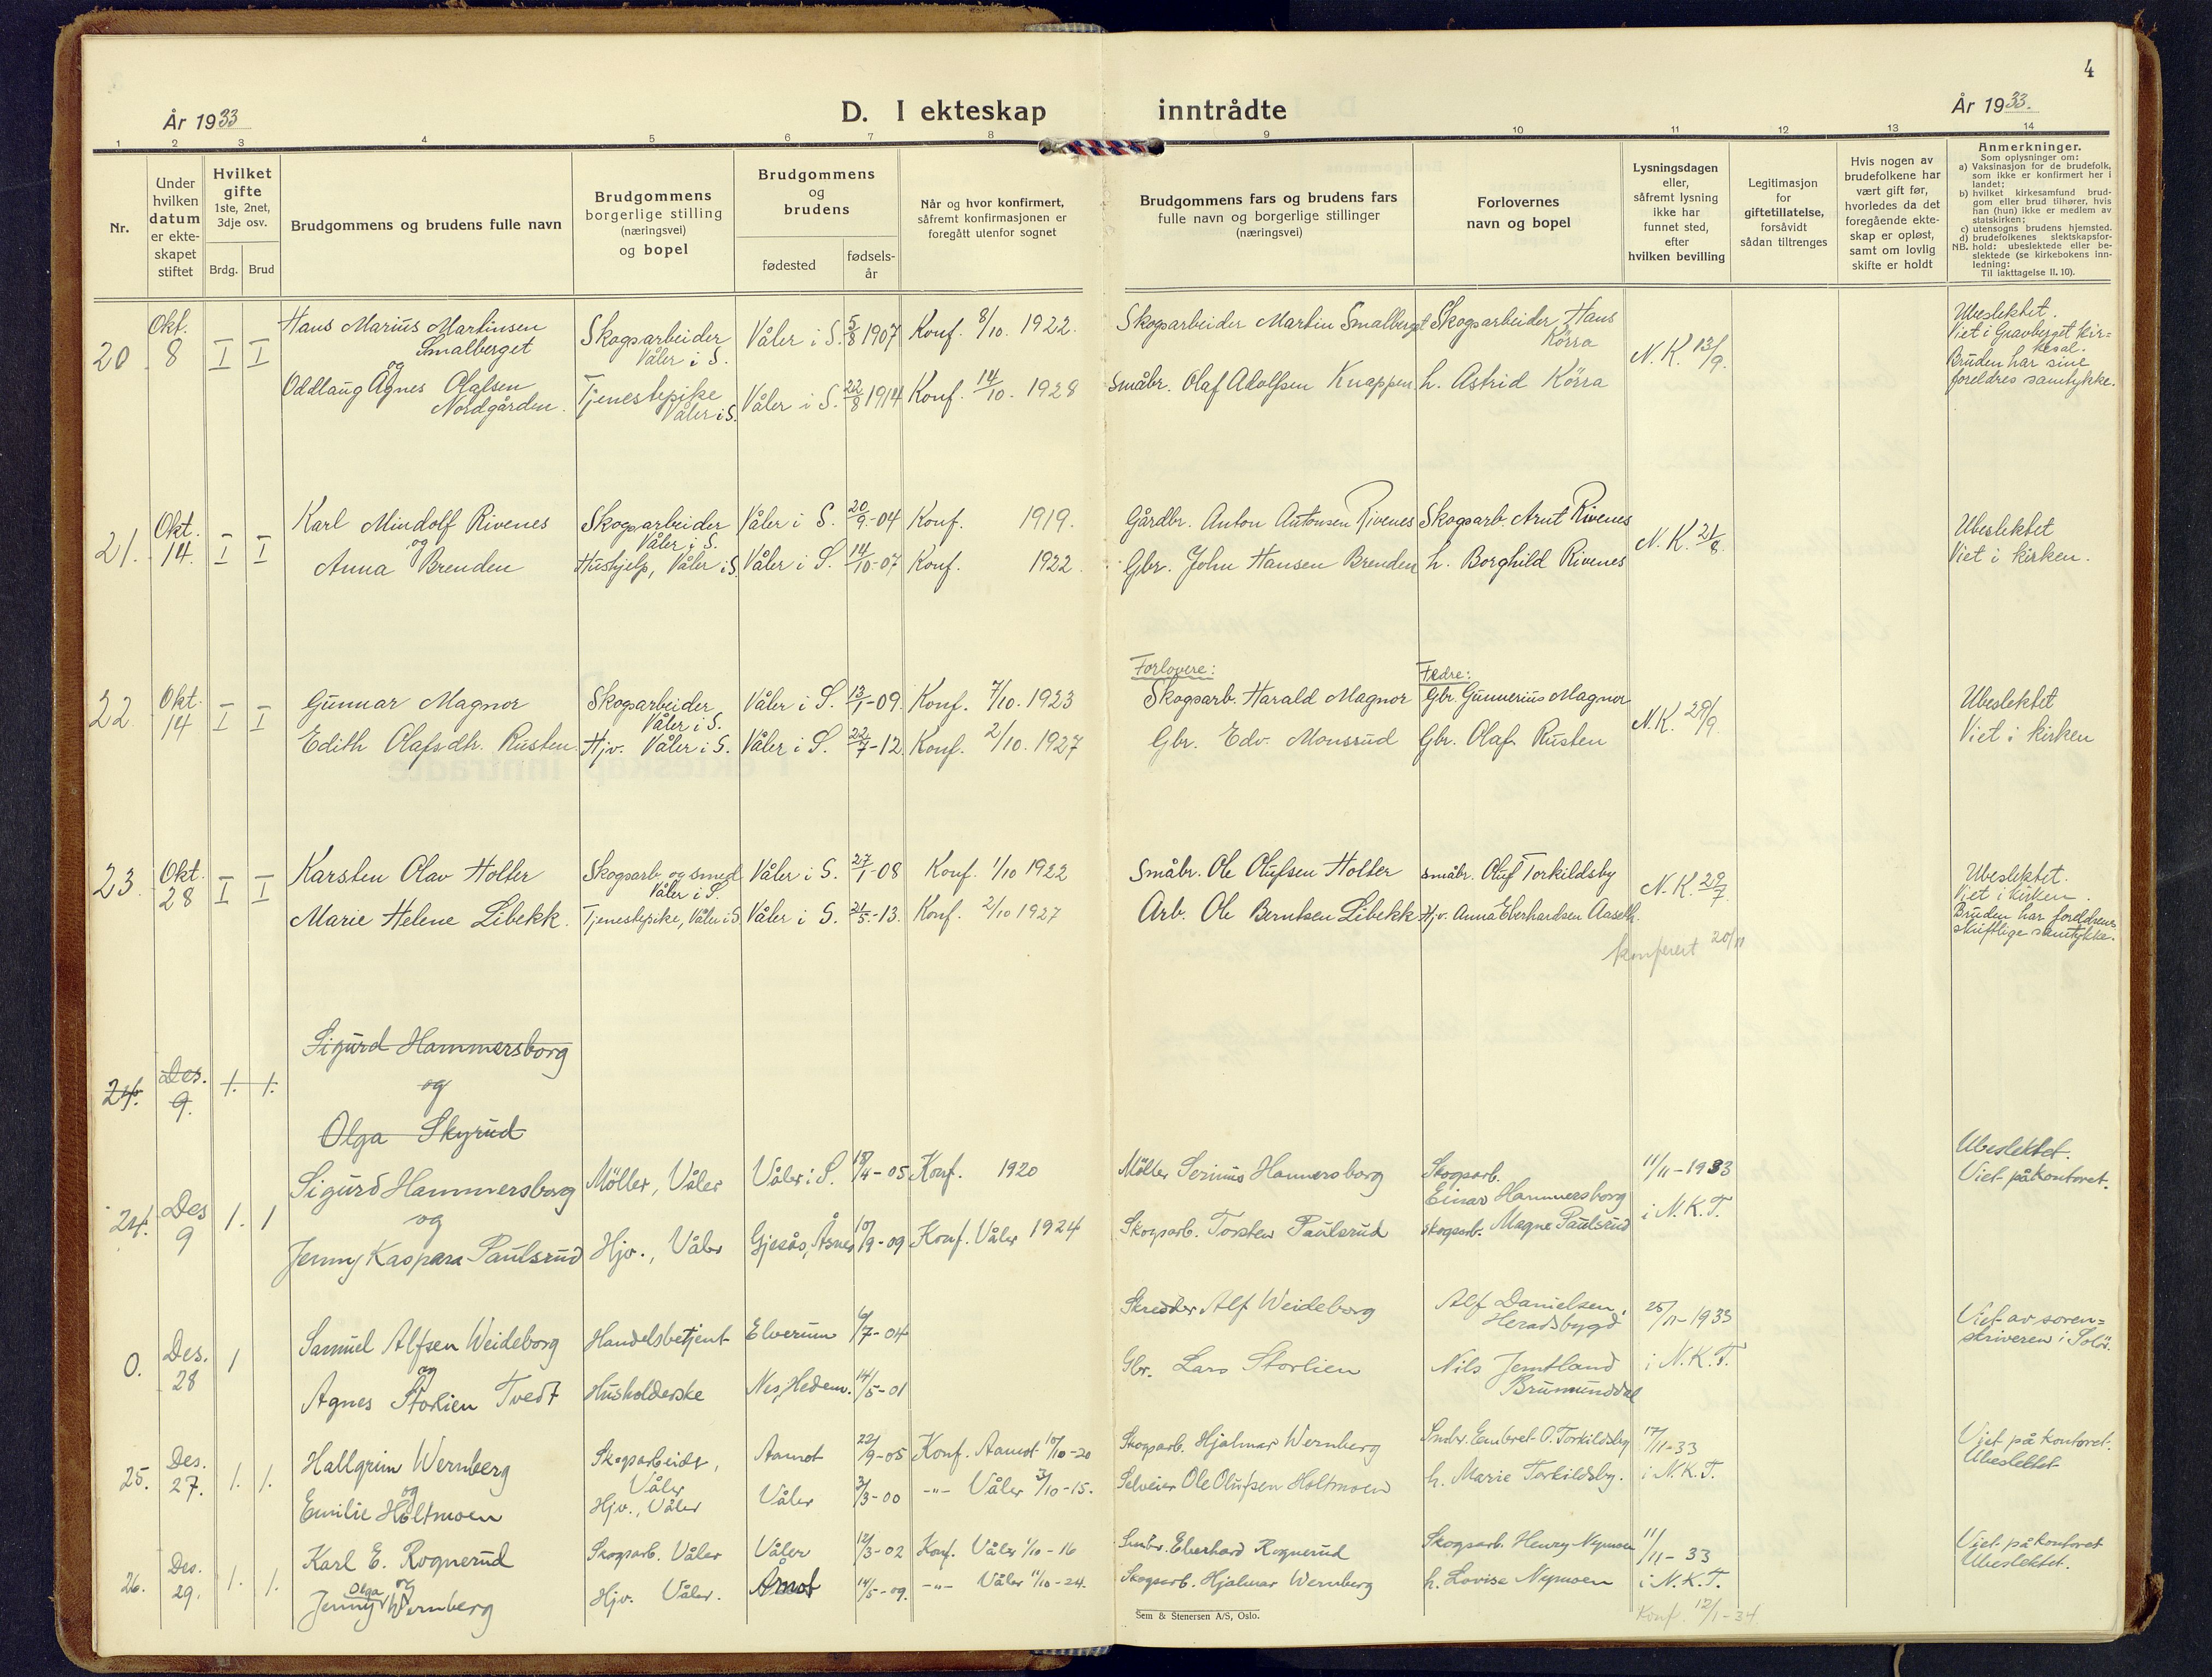 4
År 1933
D. I ekteskap inntrådte
År 1933.
1 2 3 4 5 6 7 8 9 10 11 12 13 14
Nr.
Under
hvilken
datum
er ekte-
skapet
stiftet
Hvilket
gifte
1ste, 2net,
3dje osv.
Brdg. Brud
Brudgommens og brudens fulle navn
Brudgommens
borgerlige stilling
(næringsvei)
og bopel
Brudgommens
og
brudens
fødested
fødsels-
år
Når og hvor konfirmert,
såfremt konfirmasjonen er
foregått utenfor sognet
Brudgommens fars og brudens fars
fulle navn og borgerlige stillinger
(næringsvei)
Forlovernes
navn og bopel
Lysningsdagen
eller,
såfremt lysning
ikke har
funnet sted,
efter
hvilken bevilling
Legitimasjon
for
giftetillatelse,
forsåvidt
sådan tiltrenges
Hvis nogen av
brudefolkene har
vært gift før,
hvorledes da det
foregående ekte-
skap er opløst,
samt om lovlig
skifte er holdt
Anmerkninger.
Som oplysninger om:
a) Vaksinasjon for de brudefolk,
som ikke er konfirmert her i
landet;
b) hvilket kirkesamfund brud-
gom eller brud tilhører, hvis
han (hun) ikke er medlem av
statskirken;
c) utensogns brudens hjemsted.
d) brudefolkenes slektskapsfor-
NB. hold: ubeslektede eller be-
slektede (se kirkebokens inn-
ledning:
Til iakttagelse II. 10).
20 Okt. 8 I I
Hans Marius Martinsen
Smalberget
og
Oddlaug Agnes Olafsen
Nordgården.
Skogsarbeider
Våler i S.
Tjenestepike
Våler i S.
Våler i S. 5/8 1907 Konf. 8/10. 1922.
Våler i S. 22/8 1914 Konf. 14/10. 1928
Skogsarbeider Martin Smalberget
småbr. Olaf Adolfsen Knappen
Skogsarbeider Hans
Körra
h. Astrid Körra
N.K. 13/9.
Ubeslektet.
Viet i Gravberget kir=
kesal.
Bruden har sine
foreldres samtykke.
21. Okt. 14. I I
Karl Mindolf Rivenes
og
Anna Brenden
Skogsarbeider
Våler i S.
Hushjelp, Våler i S.
Våler i S. 20/9-04 Konf. 1919.
Våler i S. 14/10-07 Konf. 1922.
Gårdbr. Anton Antonsen Rivenes
Gbr. John Hansen Brenden
Skogsarb. Arnt Rivenes
h. Borghild Rivenes
N.K. 21/8.
Ubeslektet
Viet i kirken.
22. Okt. 14 I I
Gunnar Magnor
Edith Olafsdtr. Rusten
Skogsarbeider
Våler i S.
Hjv. Våler i S.
Våler i S. 13/1-09. Konf. 7/10. 1923
Våler i S. 22/7-12. Konf. 2/10. 1927
Forlovere:
Skogsarb. Harald Magnor
Gbr. Edv. Monsrud
Fedre:
Gbr. Gunnerius Magnor
Gbr. Olaf Rusten
N.K. 29/9.
Ubeslektet
Viet i kirken
23. Okt. 28 I I
Karsten Olav Holter
Marie Helene Libekk.
Skogsarb. og smed
Våler i S.
Tjenestepike, Våler i S.
Våler i S. 27/1-08 Konf. 1/10 1922
Våler i S. 21/5-13. Konf. 2/10 1927
Småbr. Ole Olufsen Holter
Arb. Ole Berntsen Libekk
småbr. Oluf Torkildsby
Hjv. Anna Eberhardsen Aaseth.
N.K. 29/7.
konferert 20/11
Ubeslektet.
Viet i kirken.
Bruden har foreldrenes
skriftlige samtykke.
24. Des. 9. 1. 1.
Sigurd Hammersborg
og
Olga Skyrud
24. Des 9 1. 1
Sigurd Hammersborg
og
Jenny Kaspara Paulsrud
Möller, Våler
Hjv., Våler
Våler i S. 18/4-05 Konf. 1920
Gjesås, Åsnes 10/9-09 Konf. Våler 1924
Möller Serinus Hammersborg
Skogsarb. Torsten Paulsrud
Skogsarb.
Einar Hammersborg
skogsarb. Magne Paulsrud
11/11-1933
i N.K.T.
Ubeslektet.
Viet på kontoret.
0. Des. 28 1
Samuel Alfsen Weideborg
og
Agnes Storlien Tvedt
Handelsbetjent
Husholderske
Elverum 6/7-04
Nes, Hedem. 14/5-01
Skredder Alf Weideborg
Gbr. Lars Storlien
Alf Danielsen,
Heradsbygd
Nils Jemtland
Brumunddal
25/11-1933
i N.K.T.
Viet av soren=
skriveren i Solör.
25. Des. 27. 1. 1.
Hallgrim Wernberg
og
Emilie Holtmoen
Skogsarbeider,
Våler
Hjv., Våler
Aamot 22/9-05 Konf. Aamot 10/10-20
Våler 3/3-00 -"- Våler 3/10-15.
Skogsarb. Hjalmar Wernberg
Selveier Ole Olufsen Holtmoen
Småbr. Embret O. Torkildsby
h. Marie Torkildsby.
17/11-33
i N.K.T.
Viet på kontoret.
Ubeslektet
26. Des. 29. 1. 1.
Karl E. Rognerud
og
Jenny Olga Wernberg
Skogsarb. Våler
Hjv. Våler.
Våler 12/3-02 Konf. Våler 1/10-16
Åmot 14/5-09. -"- Våler 11/10-24.
Småbr. Eberhard Rognerud
Skogsarb. Hjalmar Wernberg
Skogsarb. Henry Nymoen
h. Lovise Nymoen
11/11-33
i N.K.T.
Konf. 12/1-34
Viet på kontoret
Ubeslektet.
Sem & Stenersen A/S, Oslo.